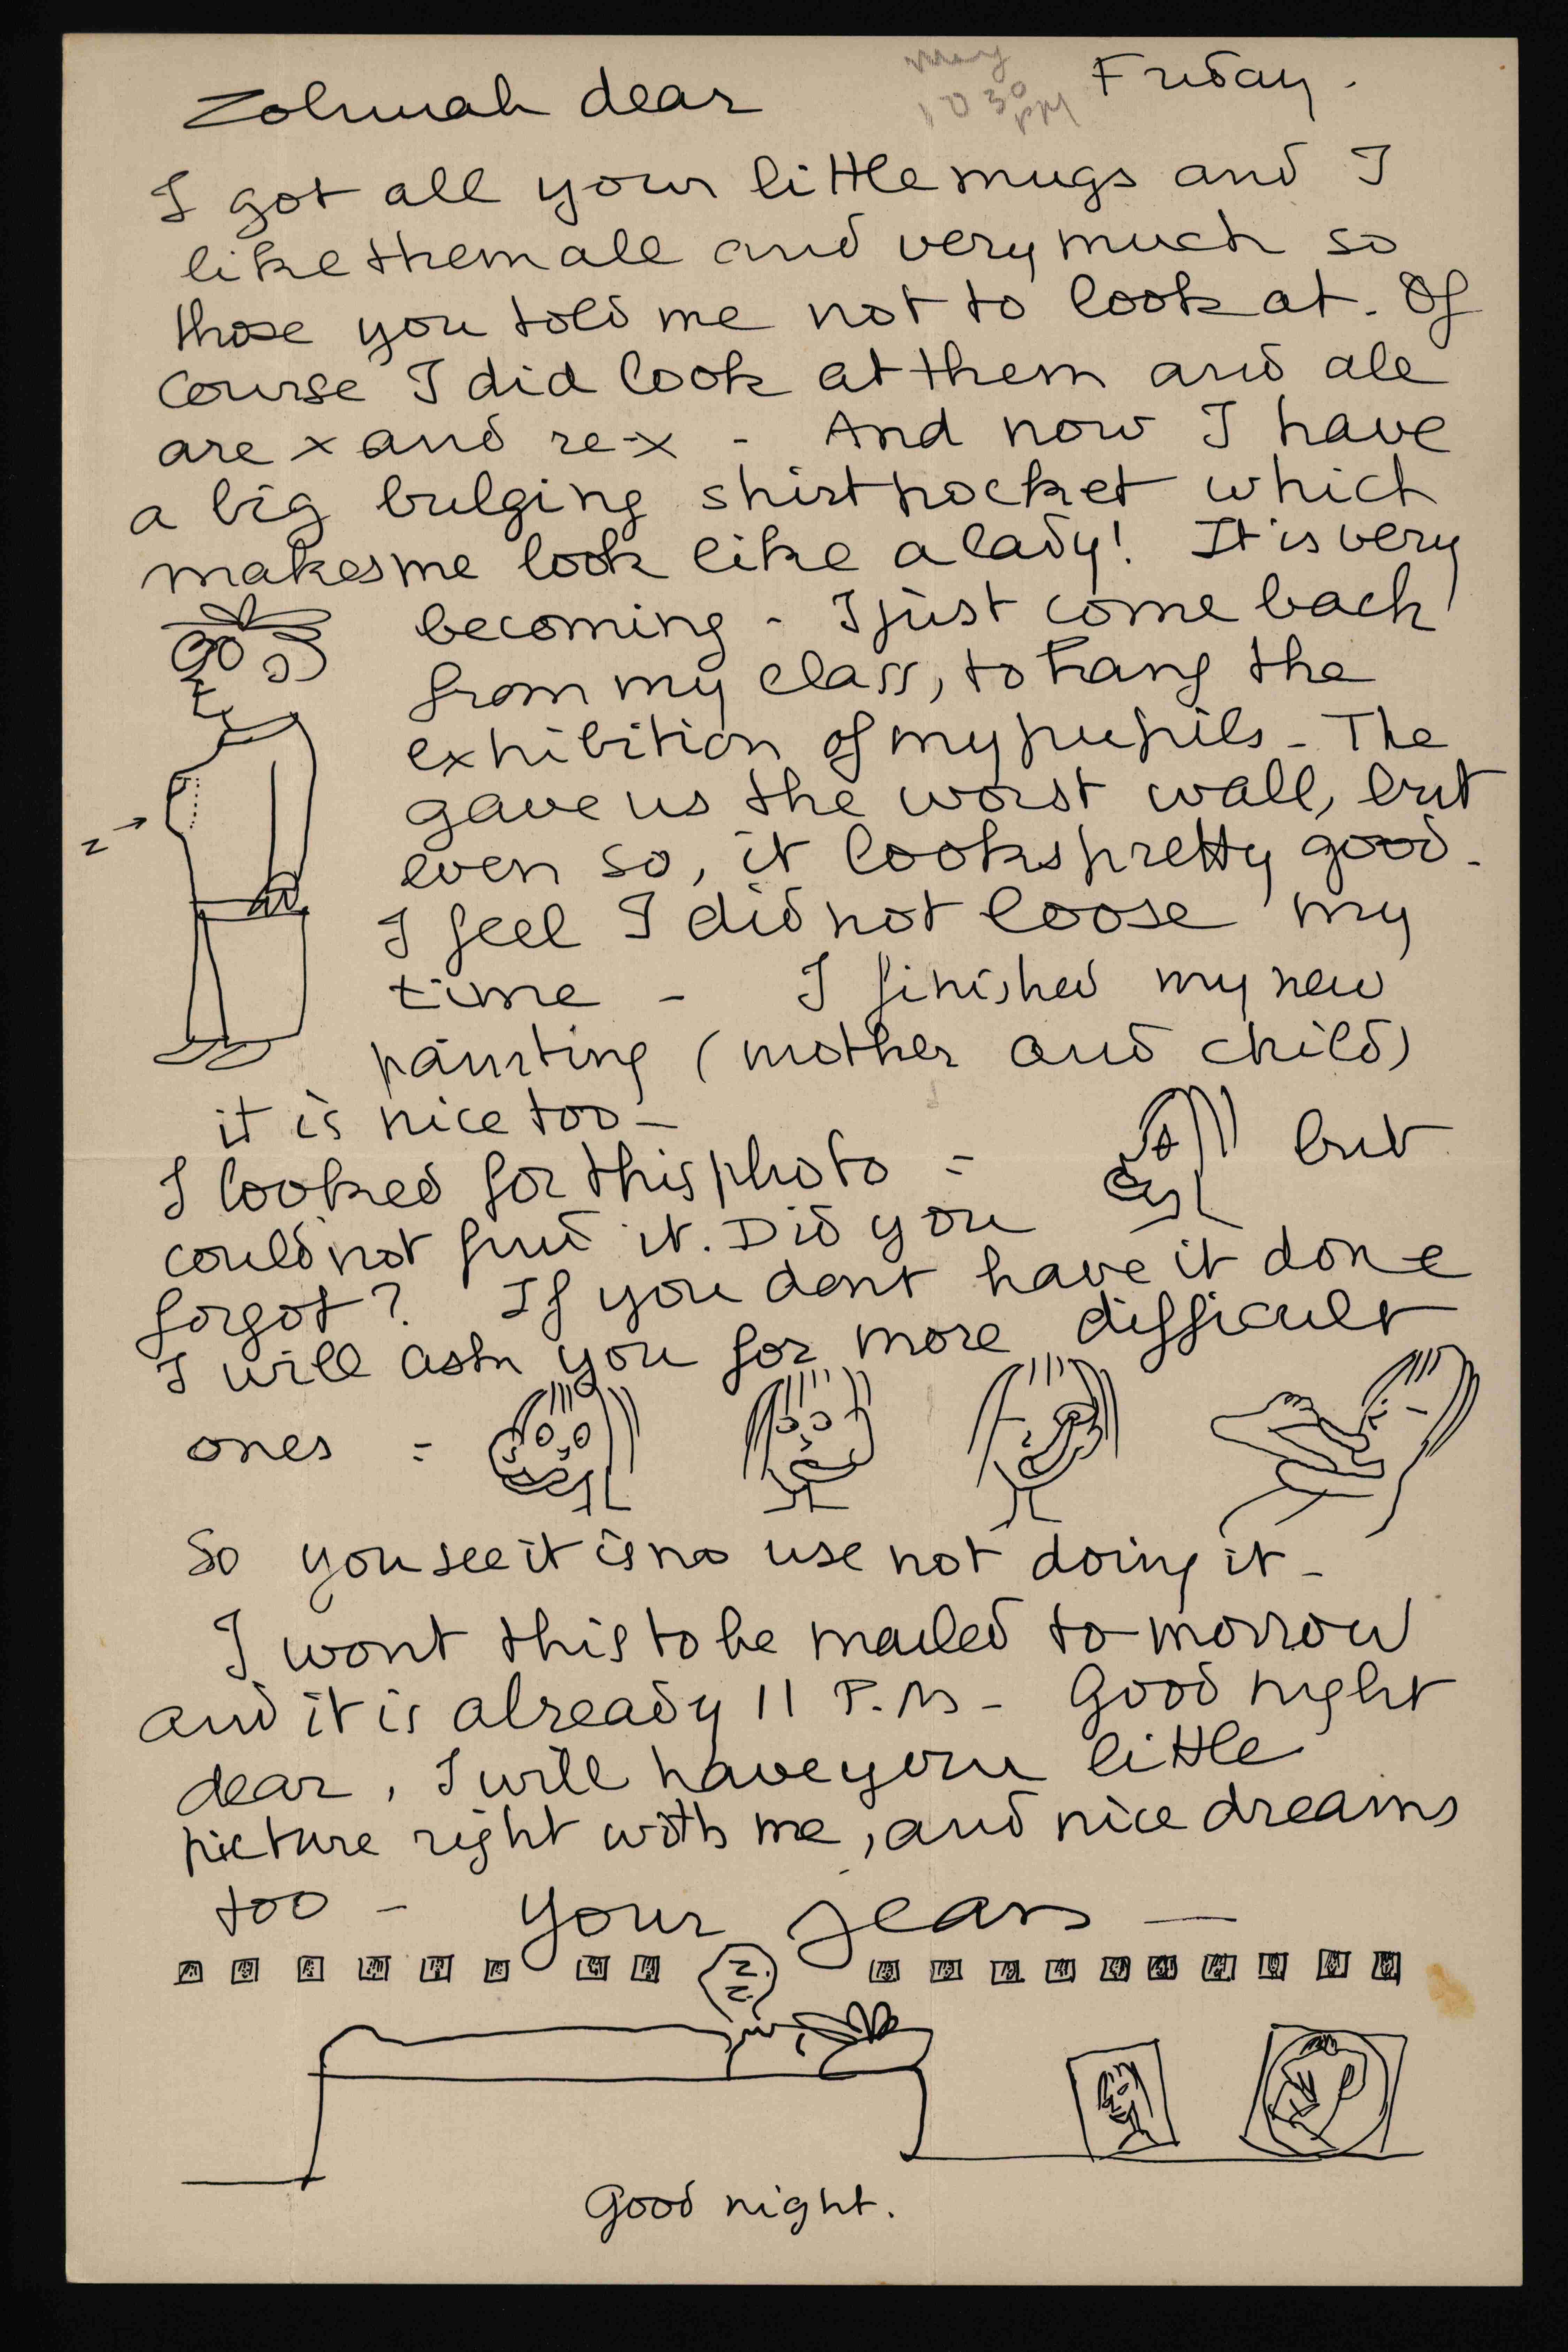 Friday.
May
10 30
PM
Zohmah dear
I got all your little mugs and I
like them all and very much so
those you told me not to look at. Of
course I did look at them and all
are x and re-x - And now I have
a big bulging shirt pocket which
makes me look like a lady! It is very
becoming - I just come back
from my class, to hang the
exhibition of my pupils - The
gave us the worst wall, but
even so, it looks pretty good -
I feel I did not loose my
time - I finished my new
painting (mother and child)
it is nice too -
I looked for this photo = but
could not find it. Did you
forgot? If you dont have it done
I will ask you for more difficult
ones =
So you see it is no use not doing it -
I wont this to be mailed to-morrow
and it is already 11 P.M - Good night
dear, I will have your little
picture right with me, and nice dreams
too - your Jean -
Z
Z.
Z.
Good night.